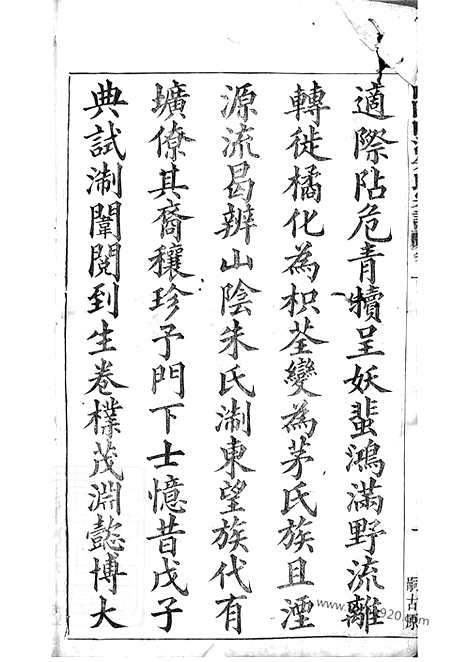 適際阽危青犢呈妖蜚鴻滿野流離
轉徙橘化為枳荃變為茅氏族且湮
源流曷辨山陰朱氏淛東望族代有
壙僚其裔穰珍予門下士憶昔戊子
典試淛闈閱到生卷樸茂淵懿博大